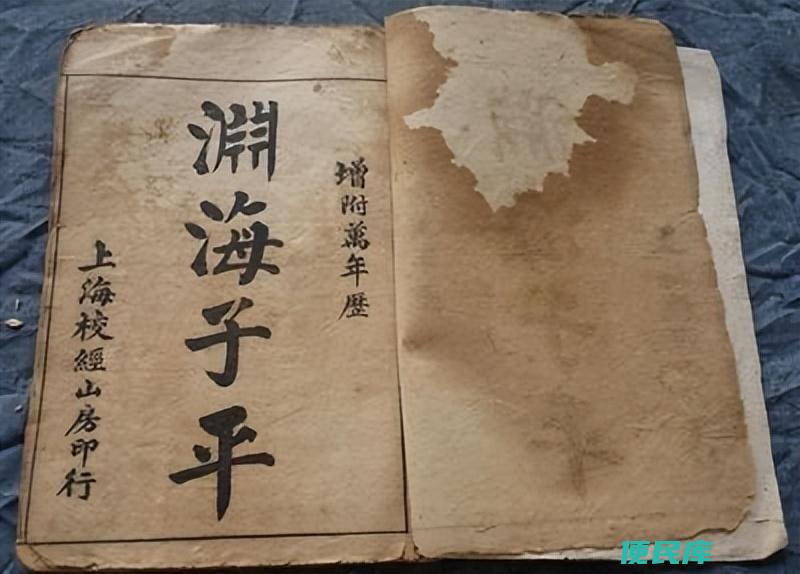 增附萬年歷
淵海子平
上海校經山房印行
便民库